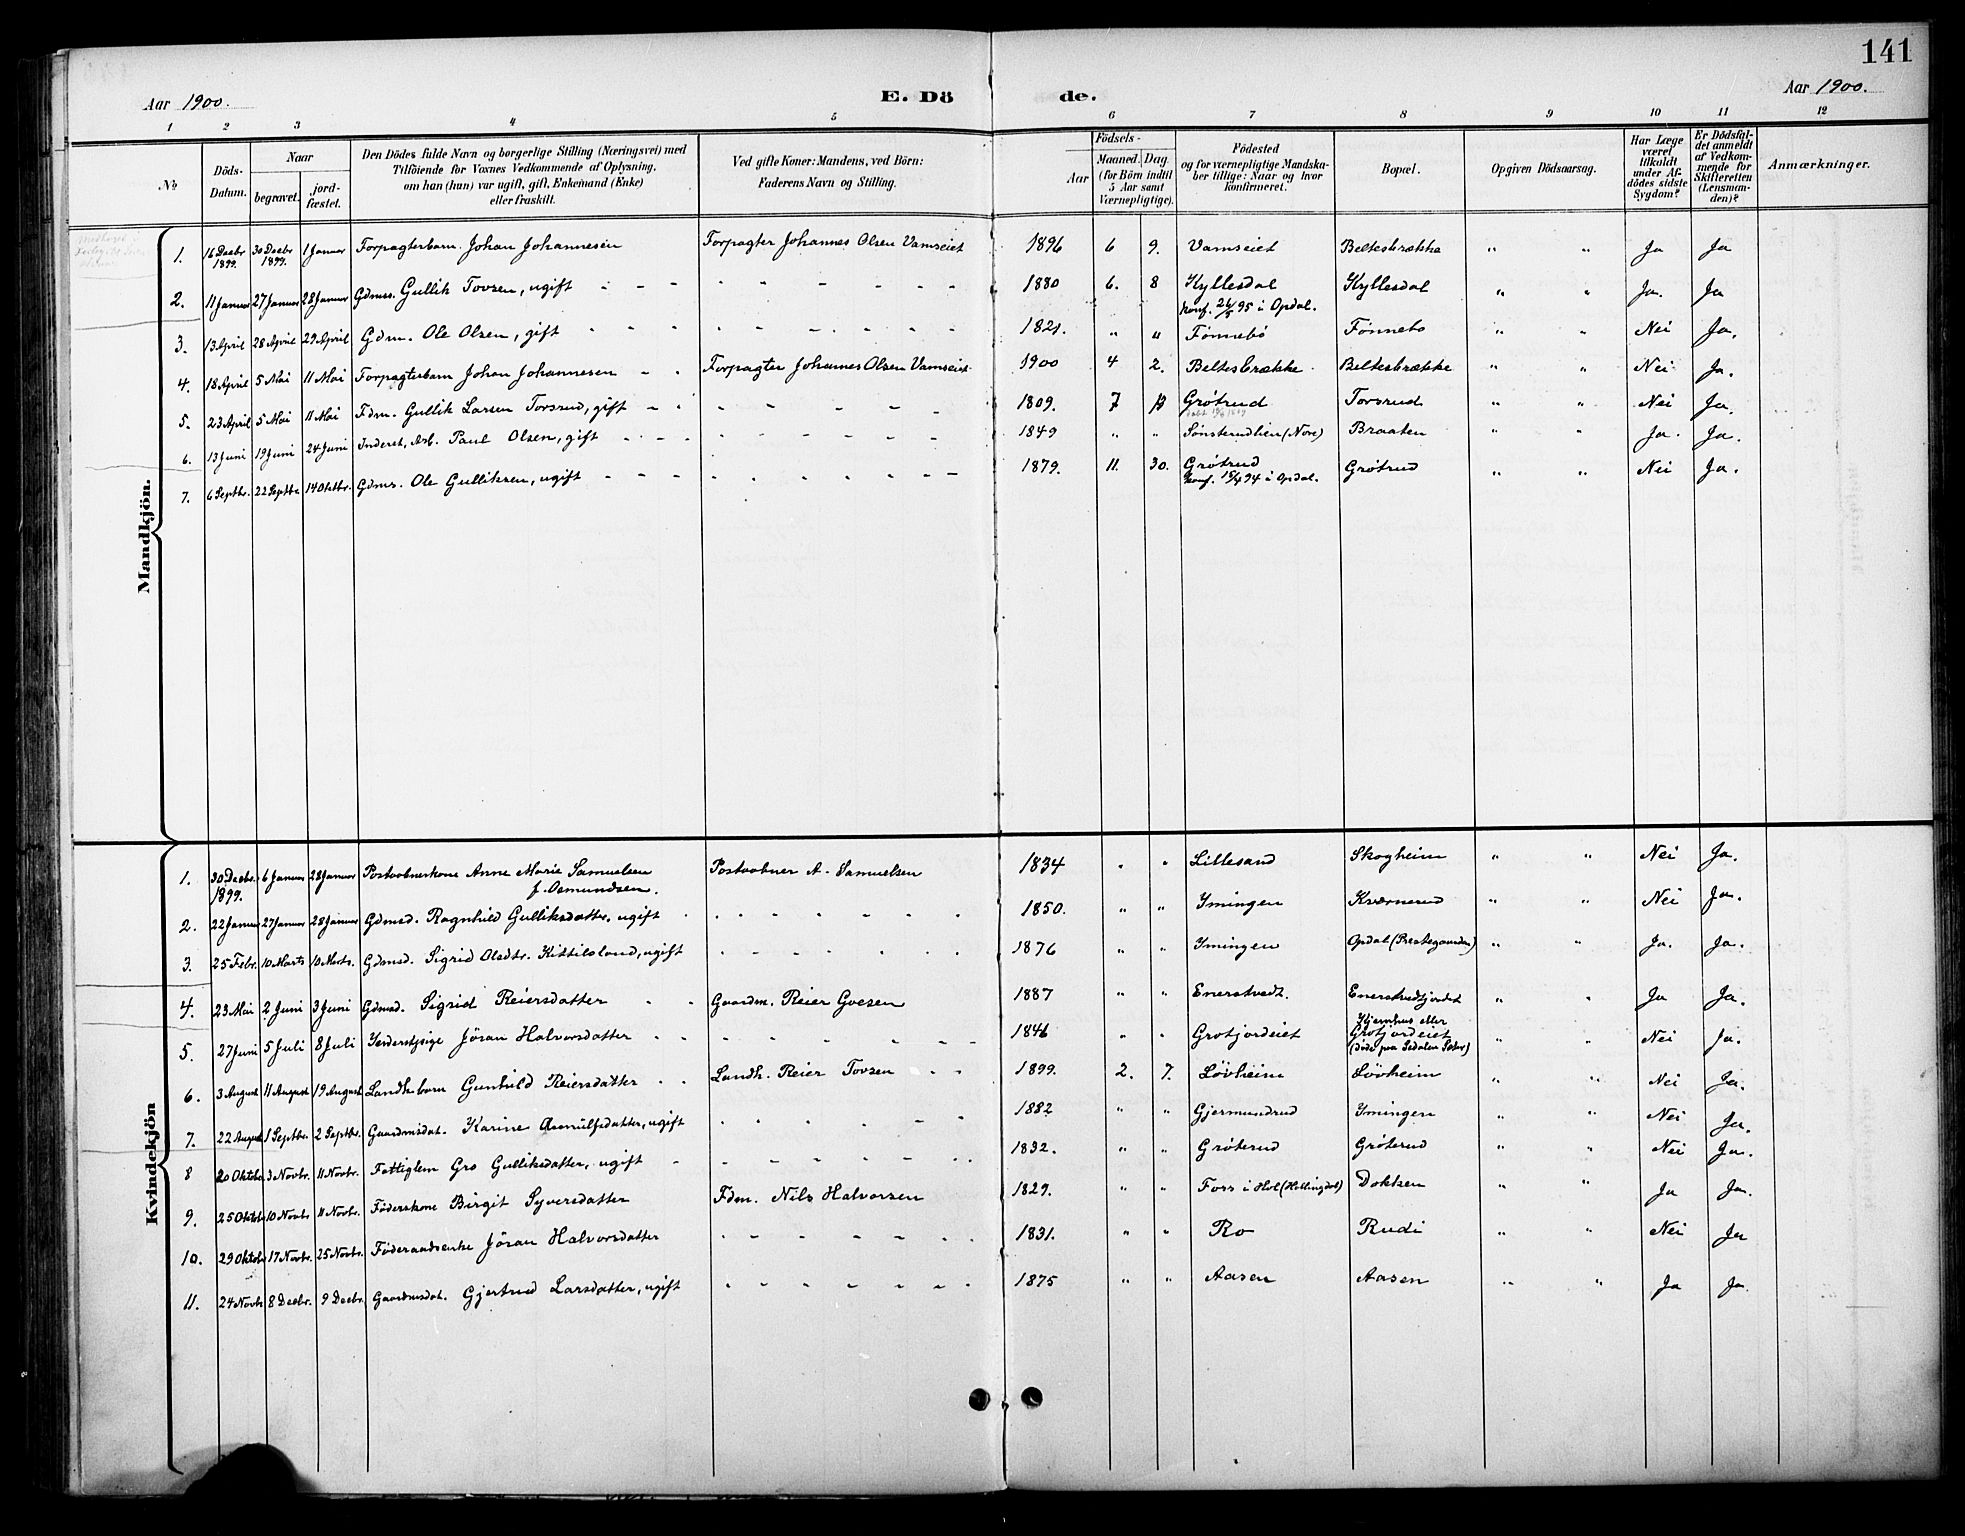 141
Aar 1900.
E. Döde.
Aar 1900.
1 2 3 4 5 6 7 8 9 10 11 12
No
Döds-Datum.
Naar
begravet.
jord-fæstet.
Den Dödes fulde Navn og borgerlige Stilling (Næringsvei) med
Tilföiende for Voxnes Vedkommende af Oplysning,
om han (hun) var ugift, gift, Enkemand (Enke)
eller fraskilt.
Ved gifte Koner: Mandens, ved Börn:
Faderens Navn og Stilling.
Födsels-
Aar
Maaned. Dag.
(for Börn indtil
5 Aar samt
Værnepligtige).
Födested
og for værnepligtige Mandska-
ber tillige: Naar og hvor
konfirmeret.
Bopæl.
Opgiven Dödsaarsag.
Har Læge
været
tilkaldt
under Af-
dödes sidste
Sygdom?
Er Dödsfal-
det anmeldt
af Vedkom-
mende for
Skifteretten
(Lensman-
den)?
Anmærkninger.
Mandkjön.
1. 16 Decbr 1899. 30 Decbr 1899. 1 Januar Forpagterbarn Johan Johannesen Forpagter Johannes Olsen Vamseiet 1896 6 9. Vamseiet Beltesbrække " " Ja Ja
2. 11 Januar 27 Januar 28 Januar Gdmss. Gullik Tovsen, ugift 1880 6. 8 Kyllesdal Kyllesdal " " Ja. Ja
Konf. 26/5 95 i Opdal.
3. 13 April 28 April 29 April Gdm. Ole Olsen, gift 1821. " " Fønnebö Fønnebö " " Nei Ja.
4. 18 April 5 Mai 11 Mai Forpagterbarn Johan Johannesen Forpagter Johannes Olsen Vamseiet 1900 4 2. Beltesbrække Beltesbrække " " Nei Ja.
5. 23 April 5 Mai 11 Mai Fdm. Gullik Larsen Torsrud, gift 1809. 7 Grøtrud Torsrud " " Nei Ja.
6. 13 Juni 19 Juni 24 Juni Inderst, Arb. Paul Olsen, gift 1849 " " Sønsterudlien (Nore) Braaten " " Ja. Ja.
7. 6 Septbr. 22 Septbr 14 Oktbr. Gdms. Ole Gulliksen, ugift 1879. 11. 30. Grøtrud Grøtrud " " Nei Ja.
Konf. 15/4 94 i Opdal.
Kvindekjön
1. 30 Decbr. 1899. 6 Januar 28 Januar Postaabnerkone Anne Marie Samuelsen Postaabner A. Samuelsen 1834 " " Lillesand Skogheim " " Nei Ja.
f. Osmundsen.
2. 22 Januar 27 Januar 28 Januar Gdmsd. Ragnhild Gulliksdatter, ugift 1850. " " Ymingen Kværnerud " " Nei Ja.
3. 25 Febr. 10 Marts 10 Marts. Gdmsd. Sigrid Olsdtr. Kittilsland, ugift 1876 " " Ymingen Opdal (Prestegaarden) " " Ja. Ja.
4. 23 Mai 2 Juni 3 Juni Gdmsd. Sigrid Reiersdatter Gaardm. Reier Gvesen 1887 " " Enerstvedt. Enerstvedtjordet " " Ja Ja.
5. 27 Juni 5 Juli 8 Juli Jöran Halvorsdatter 1846 " " Grotjordeiet Kjernhus eller
Grotjordeiet " " Nei Ja.
(død paa Sæter)
6. 3 August 11 August 19 August Landh. barn Gunhild Reiersdatter Landh. Reier Tovsen 1899. 2. 7. Lövheim Lövheim " " Nei Ja.
7. 22 August 1 Septbr. 2 Septbr. Gaardmsdat. Karine Asmulfsdatter, ugift 1882 " " Gjermundrud Ymingen " " Nei Ja.
8 20 Oktbr. 3 Novbr. 11 Novbr. Fattiglem Gro Gulliksdatter, ugift 1832. " " Gröterud Gröterud " " Nei Ja.
9. 25 Oktbr 10 Novbr 11 Novbr. Föderkone Birgit Syversdatter Fdm. Nils Halvorsen 1829. " " Foss i Hol (Hallingdal) Dokken " " Ja Ja.
10. 29 Oktbr 17 Novbr. 25 Novbr. Föderaadsenke Jöran Halvorsdatter 1831. " " Ro Rudi " " Nei Ja
11. 24 Novbr 8 Decbr. 9 Decbr. Gaardmsdat. Gjertrud Larsdatter, ugift 1875 " " Aasen Aasen " " Ja Ja.